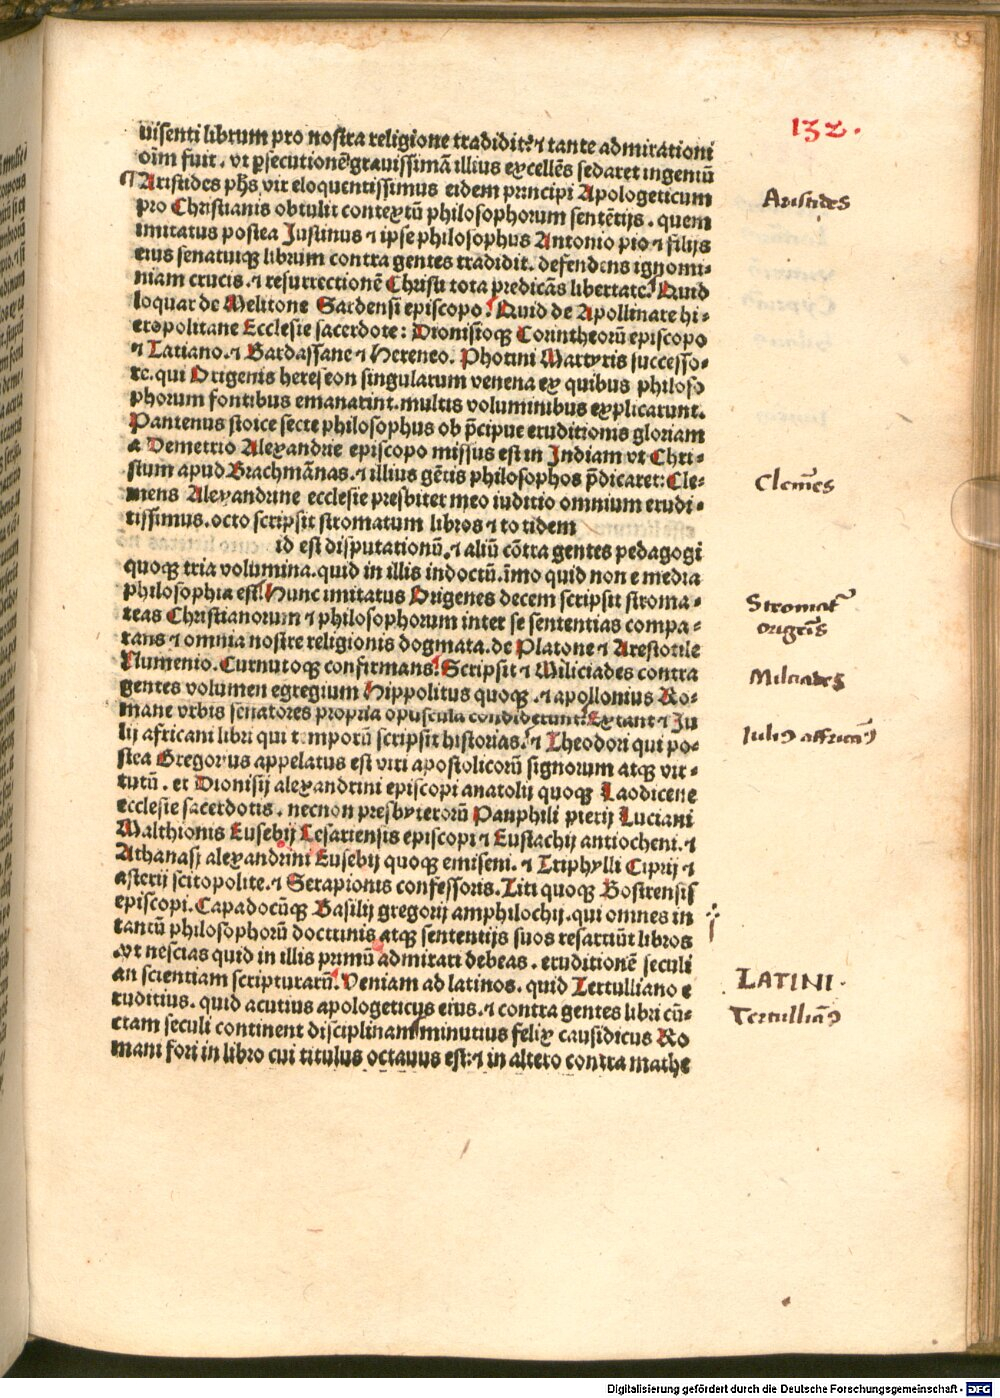 132.
uisenti librum pro nostra religione tradidit: ⁊ tante admirationi
oim̄ fuit. vt ꝑsecutionē grauissimā illius excellēs sedaret ingeniū
Aristides phs̄ vir eloquentissimus eidem principi Apologeticum
pro Christianis obtulit contextū philosophorum sentētijs. quem
imitatus postea Justinus ⁊ ipse philosophus Antonio pio ⁊ filijs
eius senatuiqꝫ librum contra gentes tradidit. defendens ignomi-
niam crucis. ⁊ resurrectionē Christi tota predicās libertate. Quid
loquar de Melitone Sardensi episcopo. Quid de Apollinare hi-
eropolitane Ecclesie sacerdote: Dionisioqꝫ Corintheorū episcopo
⁊ Tatiano. ⁊ Bardassane ⁊ Hereneo. Photini Martyris successo-
re. qui Origenis hereseon singularum venena ex quibus philoso
phorum fontibus emanarint. multis voluminibus explicarunt.
Pantenus stoice secte philosophus ob p̄cipue eruditionis gloriam
a Demetrio Alexandrie episcopo missus est in Indiam vt Chri-
stium apud Brachmānas. ⁊ illius gētis philosophos p̄dicaret: Cle-
mens Alexandrine ecclesie presbiter meo iuditio omnium erudi-
tissimus. octo scripsit stromatum libros ⁊ totidem
id est disputationū. ⁊ aliū cōtra gentes pedagogi
quoqꝫ tria volumina. quid in illis indoctū. īmo quid non e media
philosophia est. Hunc imitatus Origenes decem scripsit stroma-
teas Christianorum ⁊ philosophorum inter se sententias compa-
rans ⁊ omnia nostre religionis dogmata. de Platone ⁊ Arestotile
Numenio. Curnutoqꝫ confirmans. Scripsit ⁊ Miliciades contra
gentes volumen egregium Hippolitus quoqꝫ. ⁊ apollonius Ro-
mane vrbis senatores propria opuscula condiderunt. Extant ⁊ Ju
lij africani libri qui temporū scripsit historias. ⁊ Theodori qui po-
stea Gregorius appelatus est viri apostolicorū signorum atqꝫ vir-
tutū. et Dionisij alexandrini episcopi anatolij quoqꝫ Laodicene
ecclesie sacerdotis. necnon presbyterorū Panphili pierij Luciani
Malthionis Eusebij Cesariensis episcopi ⁊ Eustachij antiocheni. ⁊
Athanasi alexandrini Eusebij quoqꝫ emiseni. ⁊ Triphylli Ciprij ⁊
asterij scitopolite. ⁊ Serapionis confessoris. Titi quoqꝫ Bostrensis
episcopi. Capadocūqꝫ Basilij gregorij amphilochij. qui omnes in
tantū philosophorū doctrinis atqꝫ sententijs suos resarciūt libros
.vt nescias quid in illis primū admirari debeas. eruditionē seculi
an scientiam scripturarū. Veniam ad latinos. quid Tertulliano e
ruditius. quid acutius apologeticus eius. ⁊ contra gentes libri cū-
ctam seculi continent disciplinam minutius felix causidicus Ro
mani fori in libro cui titulus octauus est: ⁊ in altero contra mathe
Aristides
Clemēs
Stromat
origēis
Milciades
Iuliꝰ affricānꝰ
LATINI.
Tertulliāꝰ
Digitalisierung gefördert durch die Deutsche Forschungsgemeinschaft - DFG